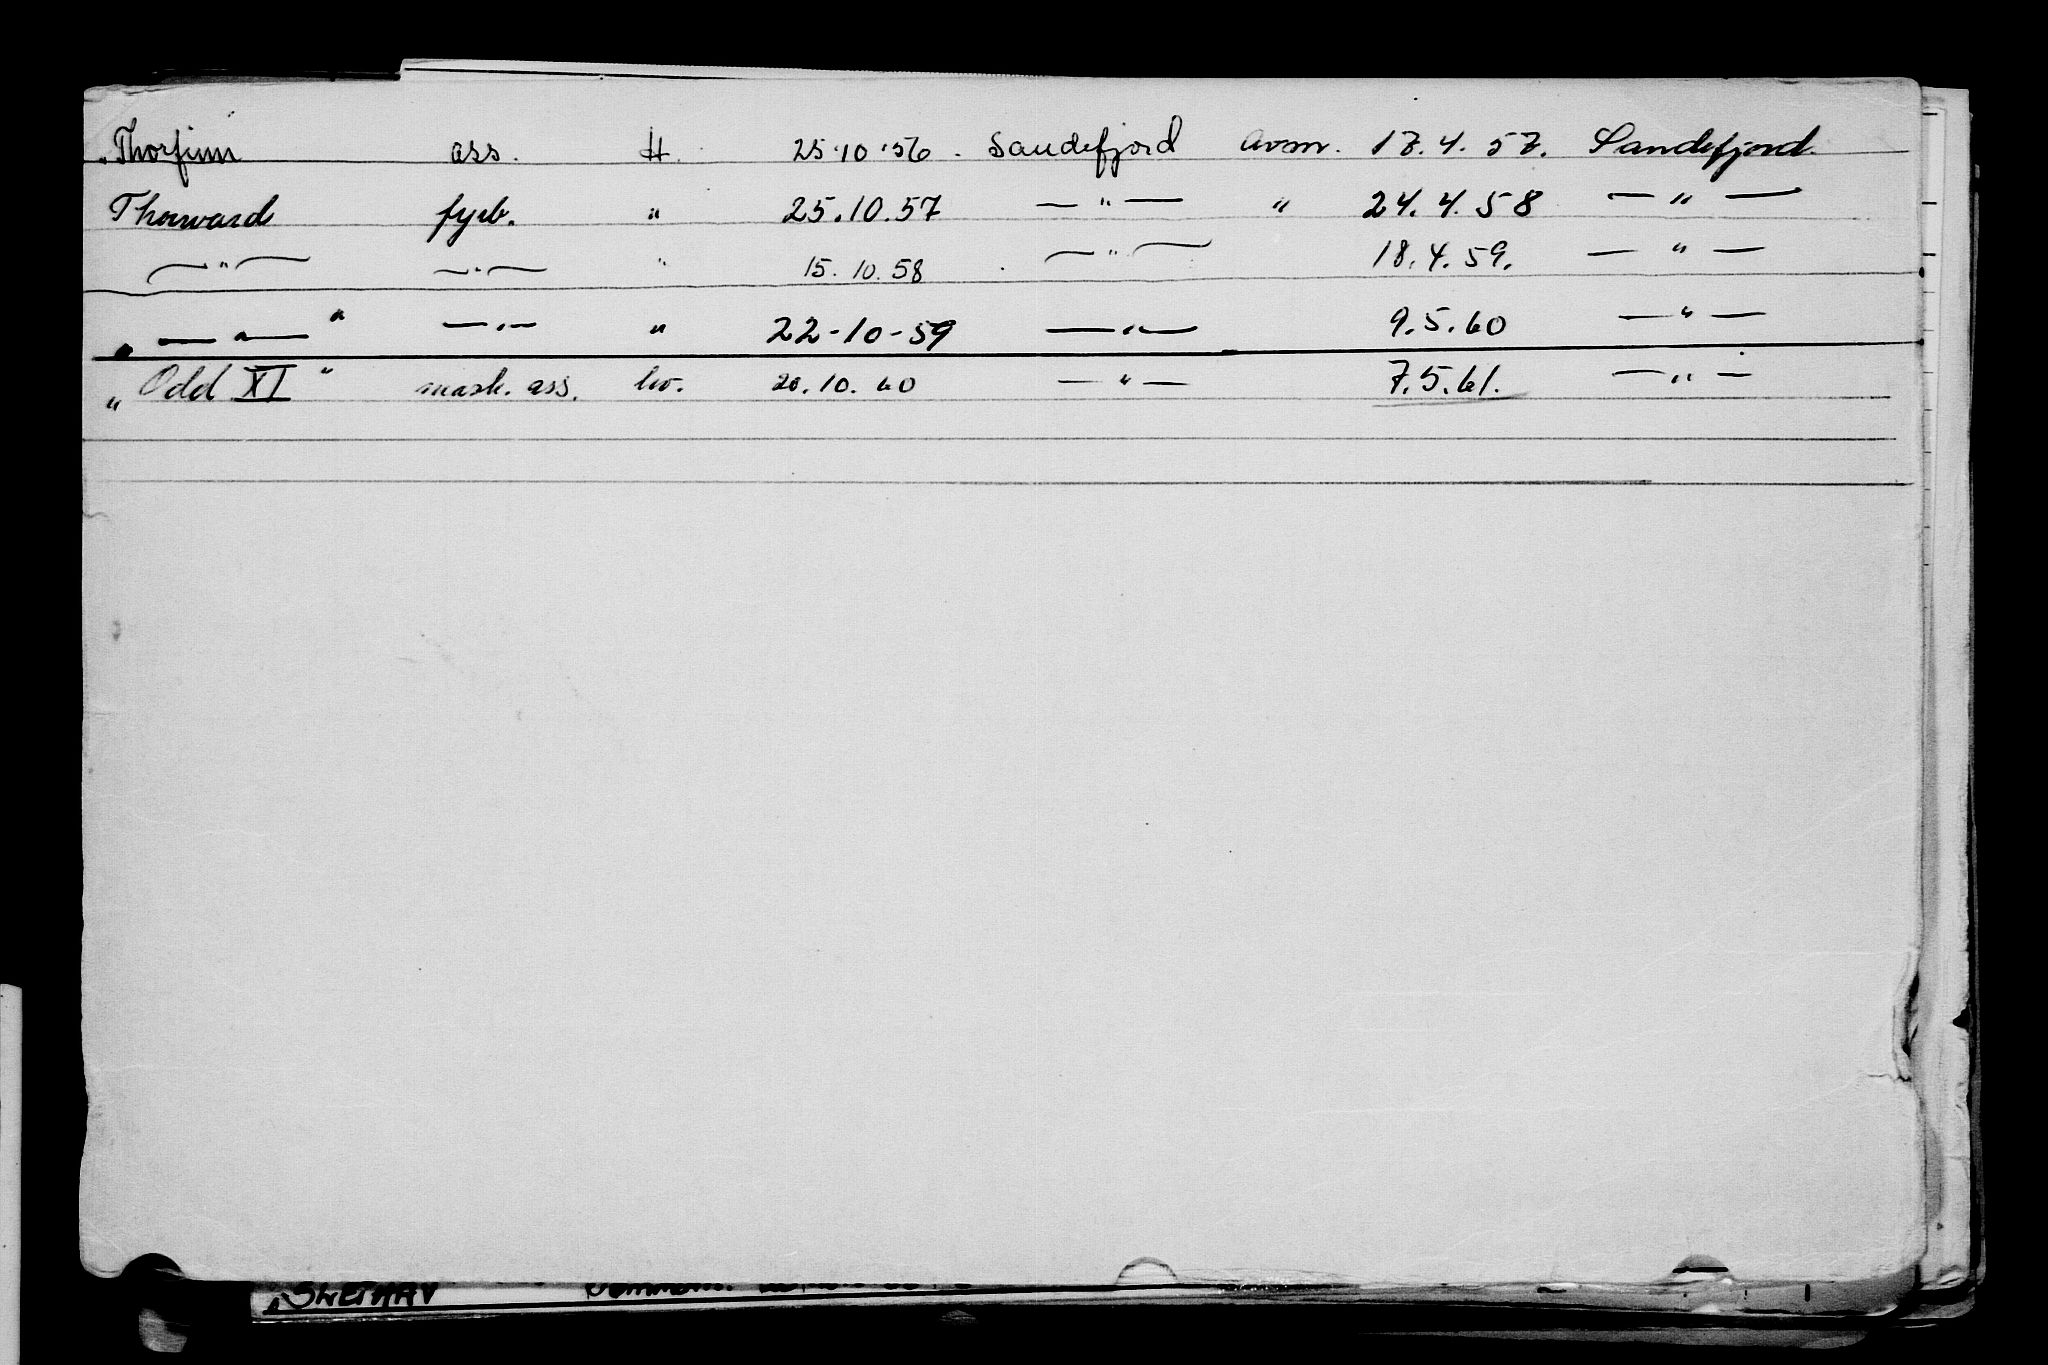 „Thorfinn ass. H. 25.10.56. Sandefjord avm. 17.4.57. Sandefjord.
Thorvard fyrb. " 25.10.57 — " — " 24.4.58 — " —
— " — — " — " 15.10.58 — " — 18.4.59. — " —
„ — " — " — " — " 22-10-59 — " — 9.5.60 — " —
„Odd XI" mask. ass. hv. 20.10.60 — " — 7.5.61. — " —